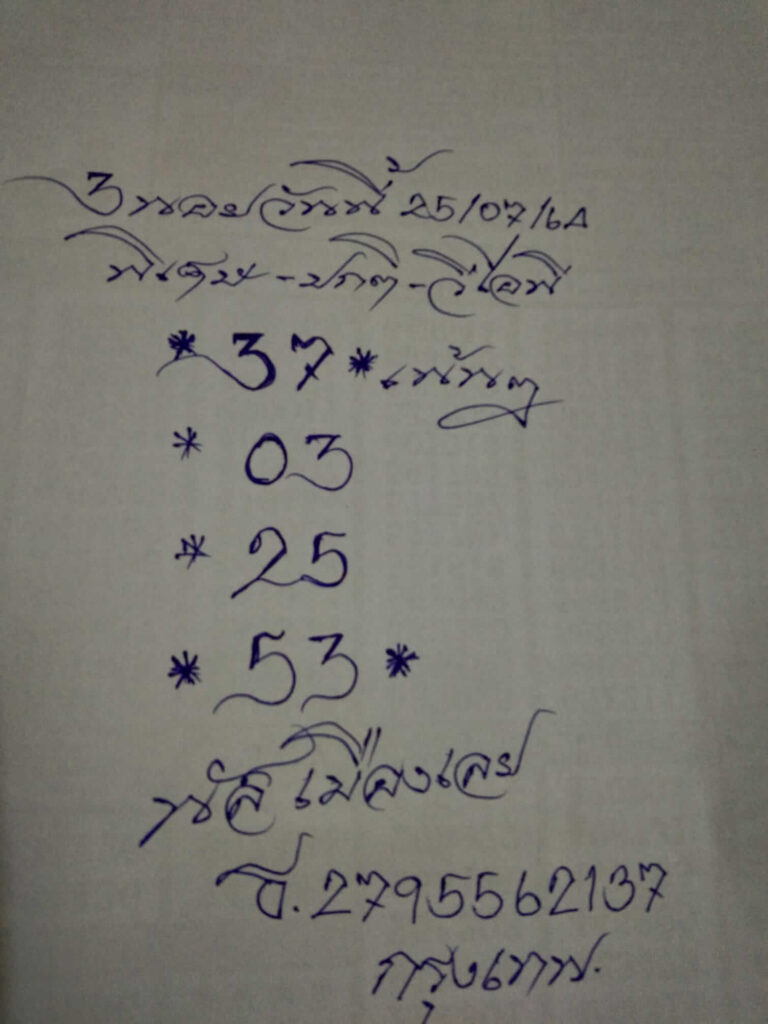 3 นอยวันนี้ 25/07/64
พิเศษ-ปกติ-วีไอพี
* 37 * เน้นๆ
* 03
* 25
* 53 *
เมืองเลย
ธ.2795562137
กรุงเทพ.